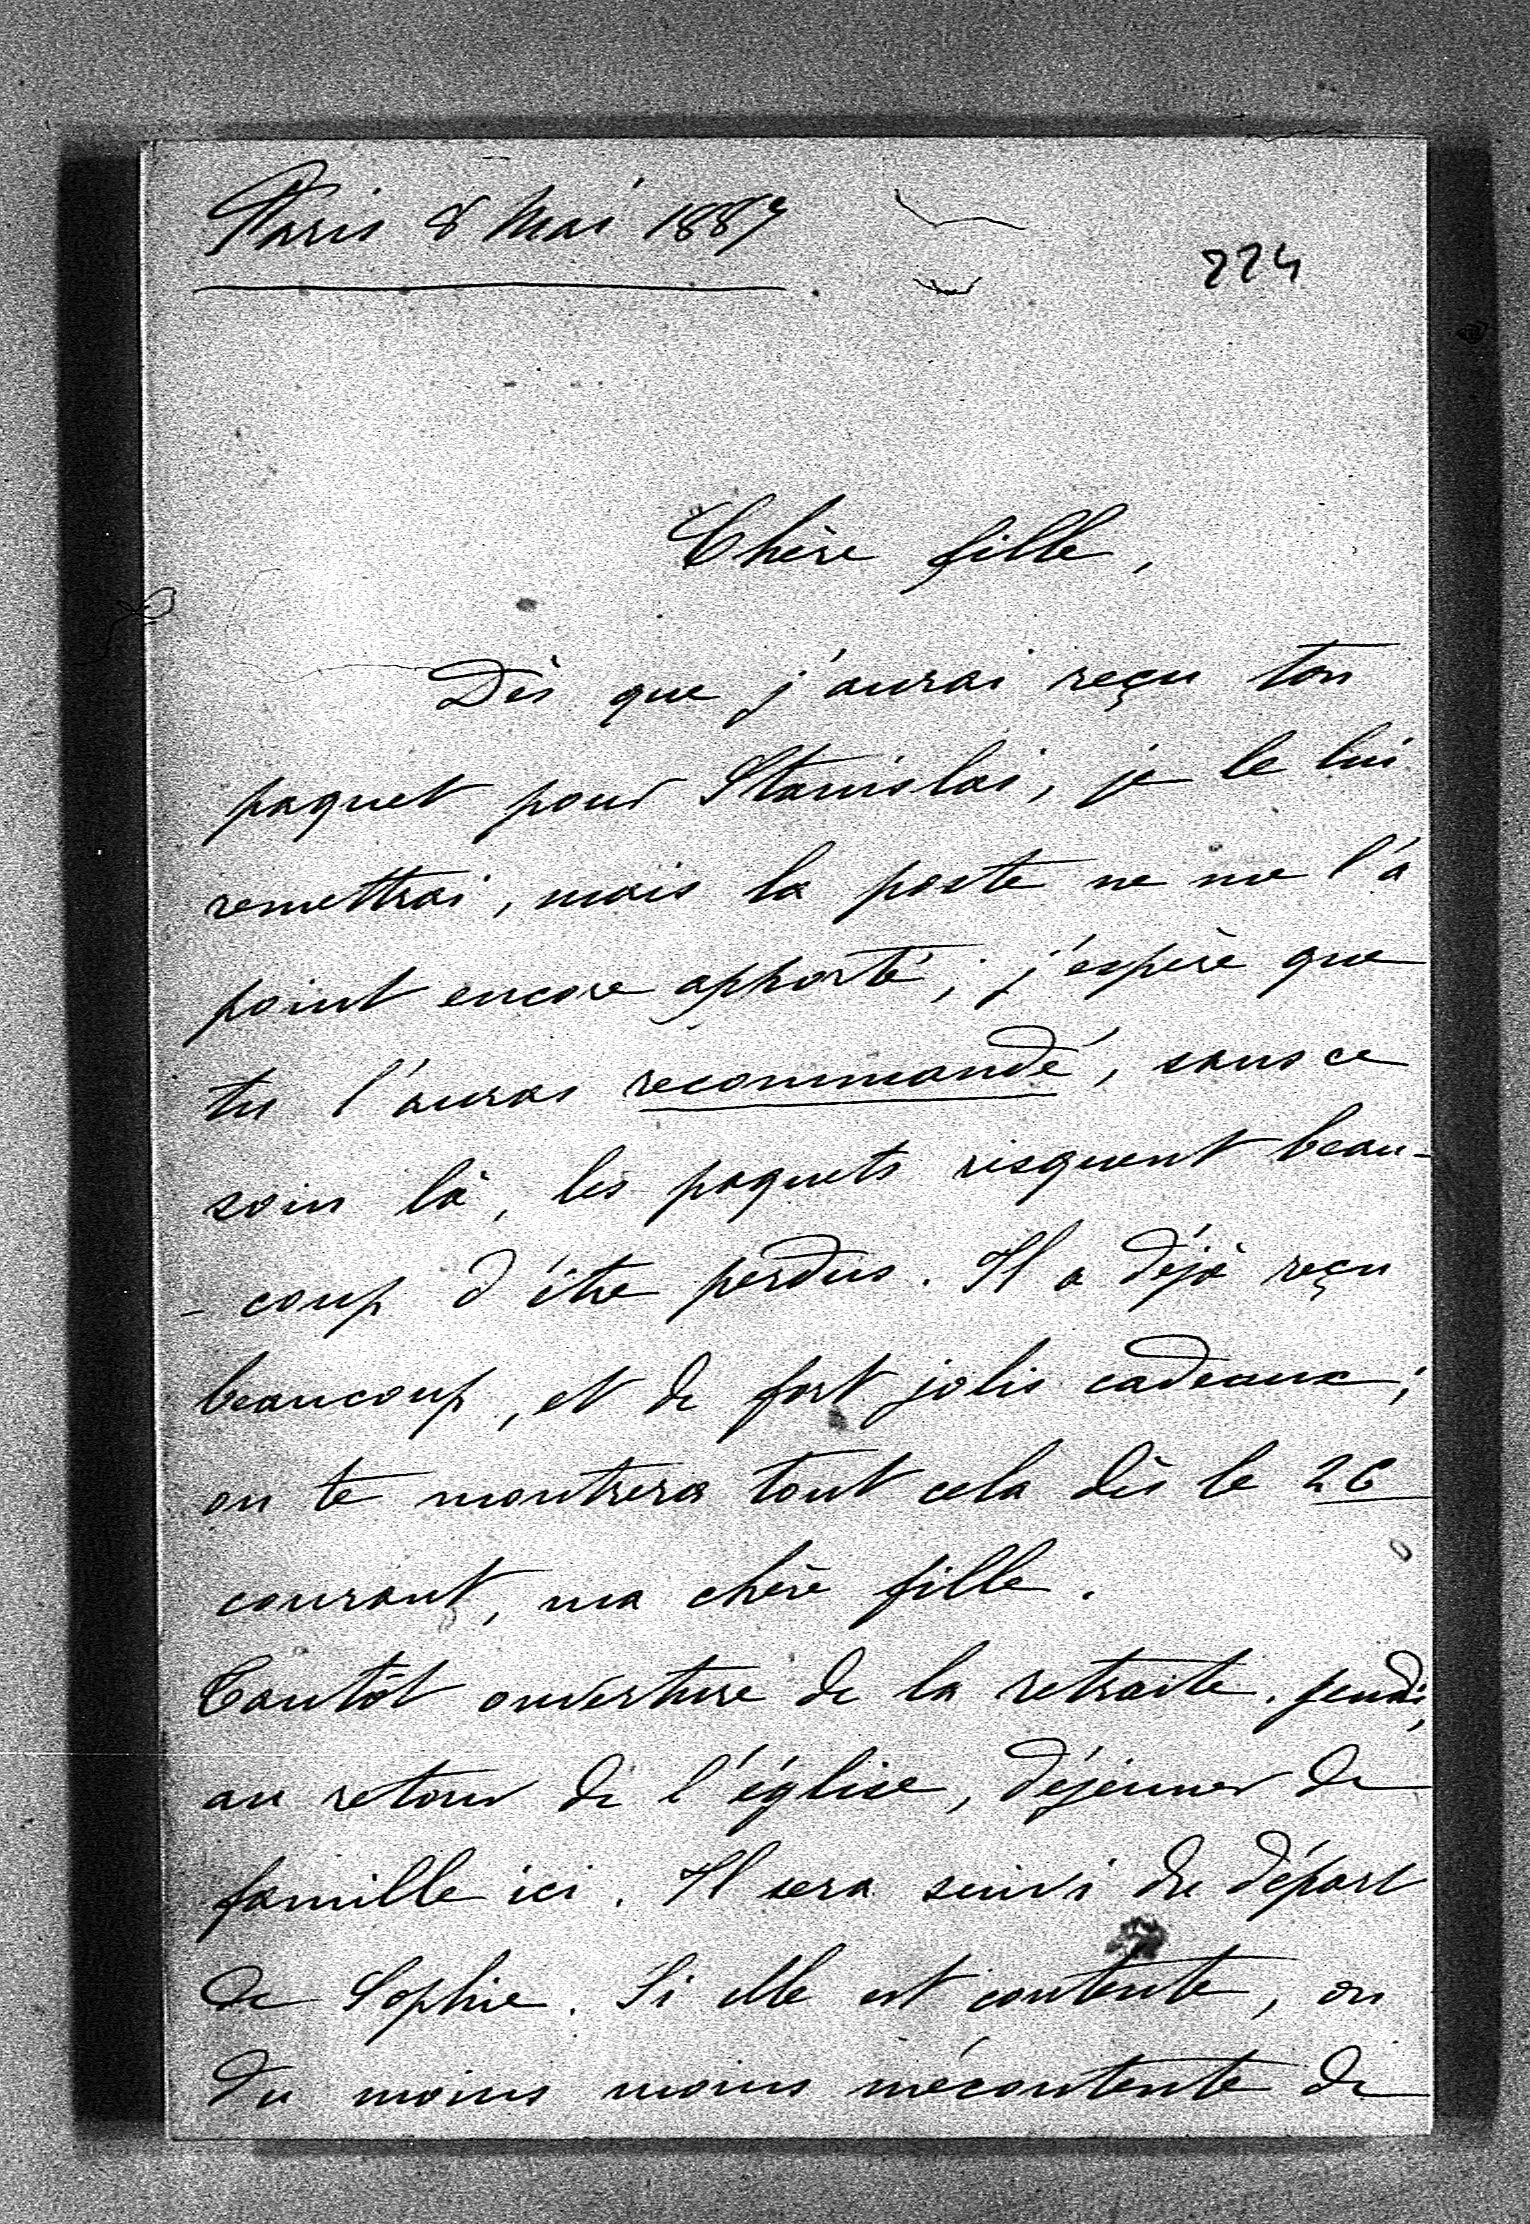 Paris 8 Mai 1887
224
Chère fille,
Dès que j'aurai reçu ton
paquet pour Stanislas, je le lui
remettrai, mais la poste ne me l'a
point encore apporté; j'espère que
tu l'auras recommandé, sans ce
soin là, les paquets risquent beau-
-coup d'être perdus. Il a déjà reçu
beaucoup, et de fort jolis cadeaux;
on te montrera tout cela dès le 26
courant, ma chère fille.
Tantôt ouverture de la retraite. jeudi,
au retour de l'église, déjeuner de
famille ici. Il sera suivi du départ
de Sophie. Si elle est contente, ou
du moins moins mécontente de